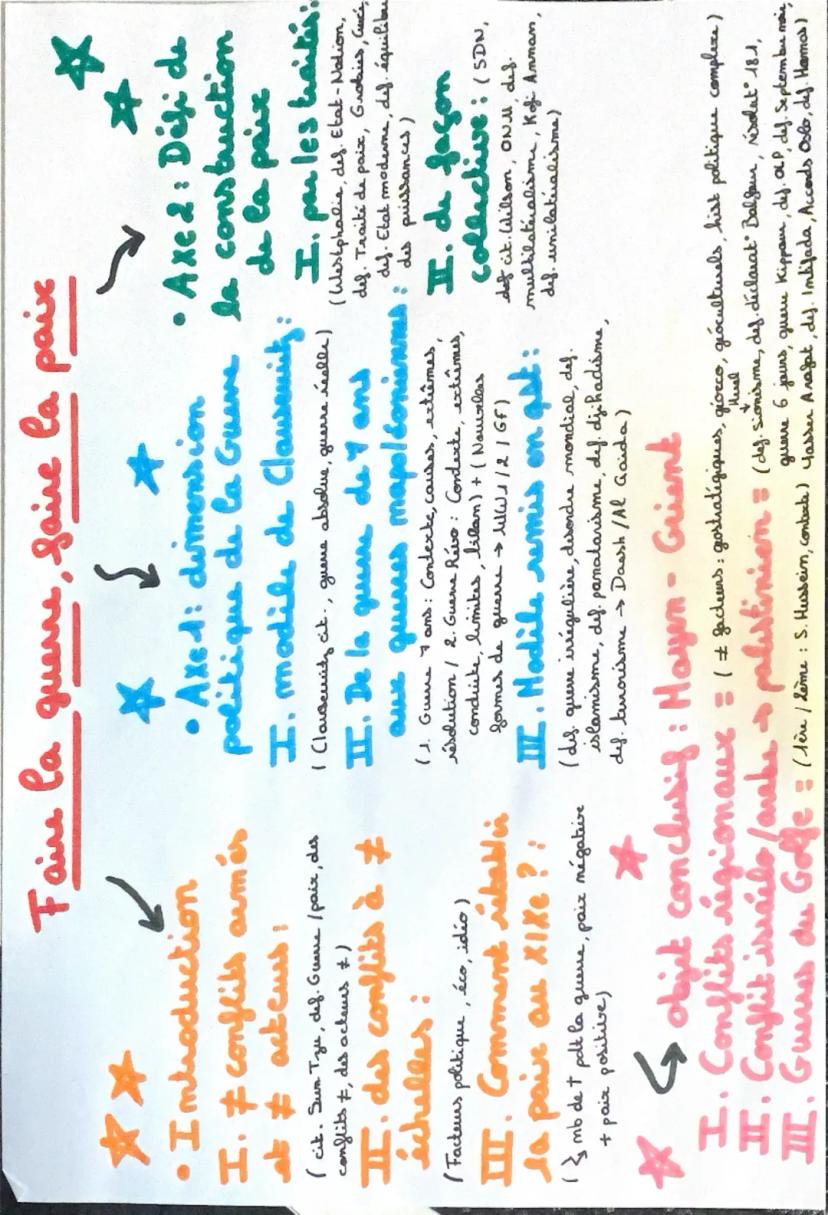 Faire la guerre, faire la paix
• Introduction
I. ≠ conflits armés
et ≠ acteurs :
( cit. Sun Tzu, def. Guerre / paix, des
conflits ≠, des acteurs ≠ )
II. des conflits à ≠
échelles :
( Facteurs politique, éco, idéo )
III. Comment établir
la paix au XIXe ? :
( ↘ nb de † pdt la guerre, paix négative
+ paix positive )
• Axe 1 : dimension
politique de la Guerre
I. modèle de Clausewitz :
( Clausewitz cit., guerre absolue, guerre réelle )
II. De la guerre de 7 ans
aux guerres napoléoniennes :
( 1. Guerre 7 ans : Contexte, causes, extrêmes,
résolution / 2. Guerre Révo : Contexte, extrêmes,
conduite, limites, bilan ) + ( Nouvelles
formes de guerre → WW1 / 2 / GF )
III. Modèle remis en qst :
( def. guerre irrégulière, désordre mondial, def.
islamisme, def. panarabisme, def. djihadisme,
def. terrorisme → Daesh / Al Qaida )
• Axe 2 : Défi de
la construction
de la paix
I. par les traités :
( Westphalie, def. Etat-Nation,
def. Traité de paix, Grotius,
def. Etat moderne, def. équilibre
des puissances )
II. de façon
collective : ( SDN,
def cit. Wilson, ONU, def.
multilatéralisme, Kofi Annan,
def. unilatéralisme )
objet conclusif : Moyen-Orient
I. Conflits régionaux = ( ≠ facteurs : géostratégiques, géoéco, géoculturels, hist politique complexe )
II. Conflit israélo/arabe → palestinien = ( def. Sionisme, def. déclarat° Balfour, résolut° 181,
guerre 6 jours, guerre Kippour, def. OLP, def. Septembre noir,
Yasser Arafat, def. Intifada, Accords Oslo, def. Hamas )
III. Guerres du Golfe = ( 1ère / 2ème : S. Hussein, contexte )